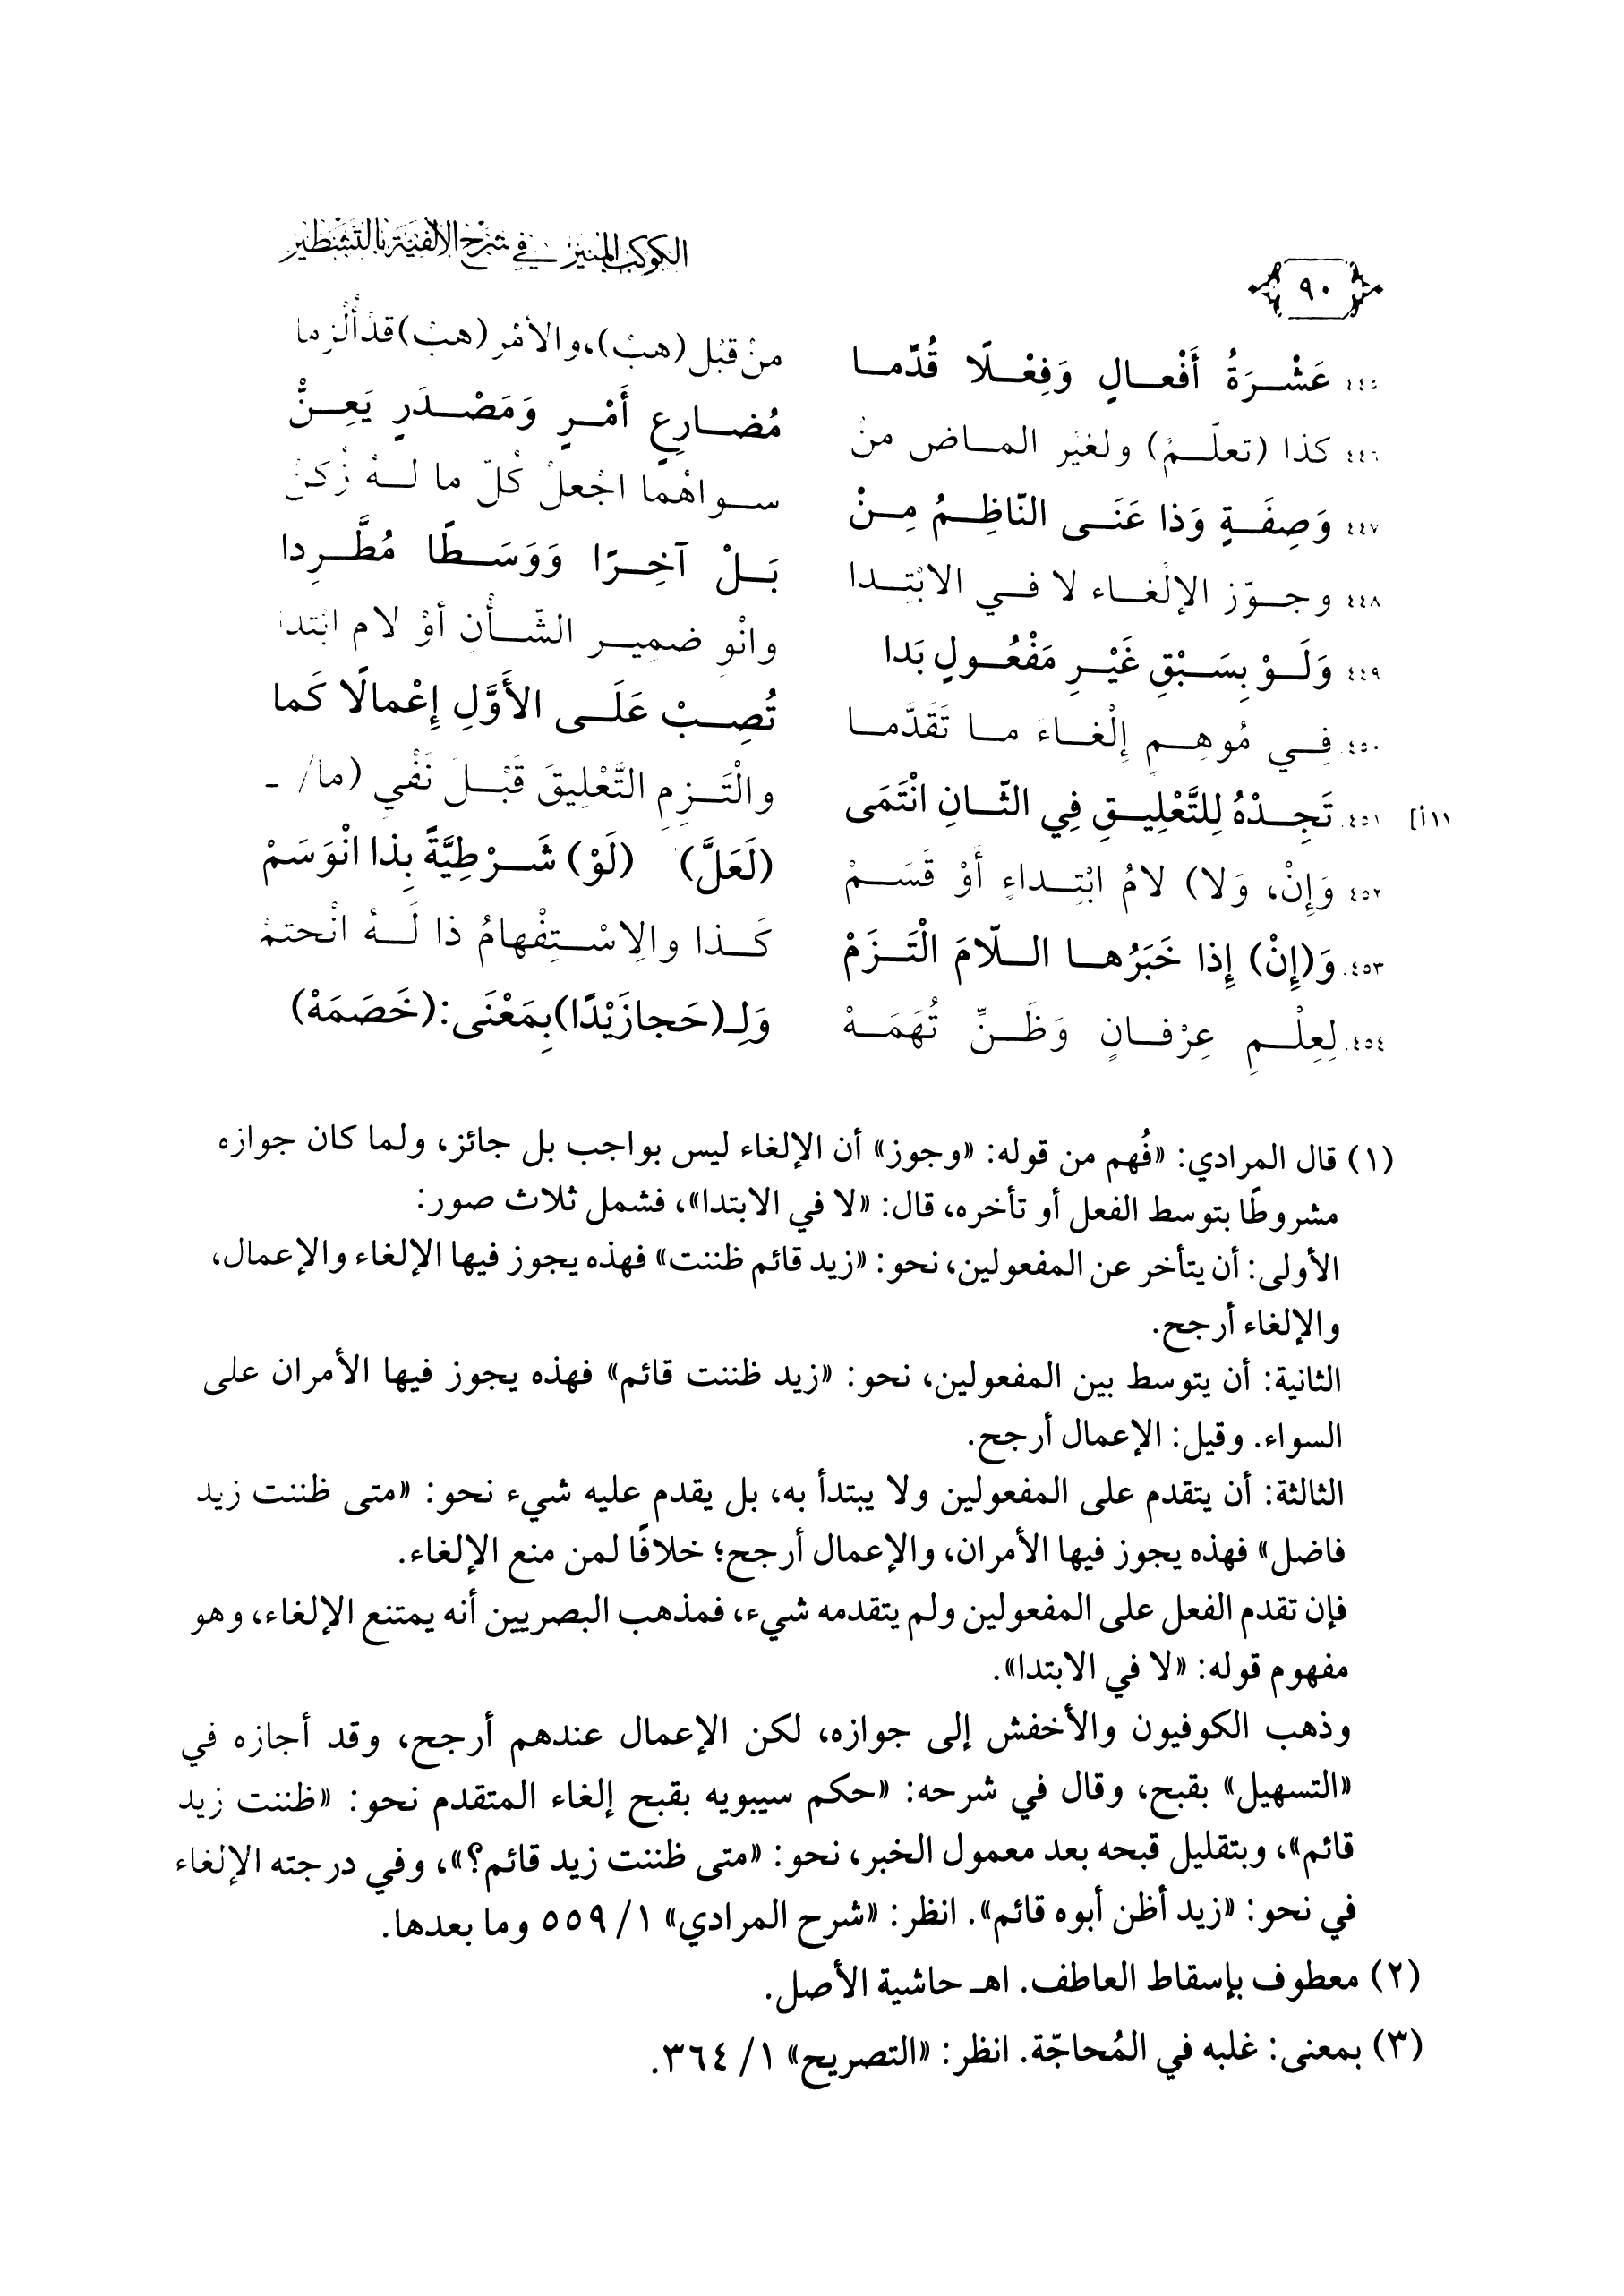 الكوكب المنير في شرح الألفية بالتشطير
٩٠
٤٤٥. عَشْرَةُ أَفْعالٍ وَفِعْلًا قُدِّما من قبْل (هبْ)، والأمْر (هبْ) قدْ أُلْزِما
٤٤٦. كذا (تعلّمْ) ولغيْر الماض منْ مُضارِعِ أَمْرٍ وَمَصْدَرٍ يَعِنُّ
٤٤٧. وَصِفَةٍ وَذا عَنَى النّاظِمُ مِنْ سواهُما اجْعلْ كُلّ ما لهُ زُكنْ
٤٤٨. وجوّز الإلْغاء لا في الابْتِدا بَلْ آخِرًا وَوَسَطًا مُطَّرِدا
٤٤٩. وَلَوْ بِسَبْقِ غَيْرِ مَفْعُولٍ بَدا وانْوِ ضمِير الشّأْنِ أوْ لام ابْتدا
٤٥٠. فِي مُوهِمِ إِلْغاءَ ما تَقَدَّما تُصِبْ عَلَى الأَوَّلِ إِعْمالًا كَما
[١١أ] ٤٥١. تَجِدْهُ لِلتَّعْلِيقِ فِي الثّانِ انْتَمَى والْتَزِمِ التَّعْلِيقَ قَبْلَ نَفْيِ (ما/ ـ
٤٥٢. وَإِنْ، وَلا) لامُ ابْتِداءٍ أَوْ قَسَمْ (لَعَلَّ) (لَوْ) شَرْطِيَّةً بِذا انْوَسَمْ
٤٥٣. وَ(إِنْ) إِذا خَبَرُها اللّامَ الْتَزَمْ كَذا والِاسْتِفْهامُ ذا لَهُ انْحتمْ
٤٥٤. لِعِلْمِ عِرْفانٍ وَظَنِّ تُهَمَهْ وَلِـ(حَجا زَيْدًا) بِمَعْنَى: (خَصَمَهْ)
(١) قال المرادي: «فُهم من قوله: «وجوز» أن الإلغاء ليس بواجب بل جائز، ولما كان جوازه
مشروطًا بتوسط الفعل أو تأخره، قال: «لا في الابتدا»، فشمل ثلاث صور:
الأولى: أن يتأخر عن المفعولين، نحو: «زيد قائم ظننت» فهذه يجوز فيها الإلغاء والإعمال،
والإلغاء أرجح.
الثانية: أن يتوسط بين المفعولين، نحو: «زيد ظننت قائم» فهذه يجوز فيها الأمران على
السواء. وقيل: الإعمال أرجح.
الثالثة: أن يتقدم على المفعولين ولا يبتدأ به، بل يقدم عليه شيء نحو: «متى ظننت زيد
فاضل» فهذه يجوز فيها الأمران، والإعمال أرجح؛ خلافًا لمن منع الإلغاء.
فإن تقدم الفعل على المفعولين ولم يتقدمه شيء، فمذهب البصريين أنه يمتنع الإلغاء، وهو
مفهوم قوله: «لا في الابتدا».
وذهب الكوفيون والأخفش إلى جوازه، لكن الإعمال عندهم أرجح، وقد أجازه في
«التسهيل» بقبح، وقال في شرحه: «حكم سيبويه بقبح إلغاء المتقدم نحو: «ظننت زيد
قائم»، وبتقليل قبحه بعد معمول الخبر، نحو: «متى ظننت زيد قائم؟»، وفي درجته الإلغاء
في نحو: «زيد أظن أبوه قائم». انظر: «شرح المرادي» ١/ ٥٥٩ وما بعدها.
(٢) معطوف بإسقاط العاطف. اهـ حاشية الأصل.
(٣) بمعنى: غلبه في المُحاجّة. انظر: «التصريح» ١/ ٣٦٤.